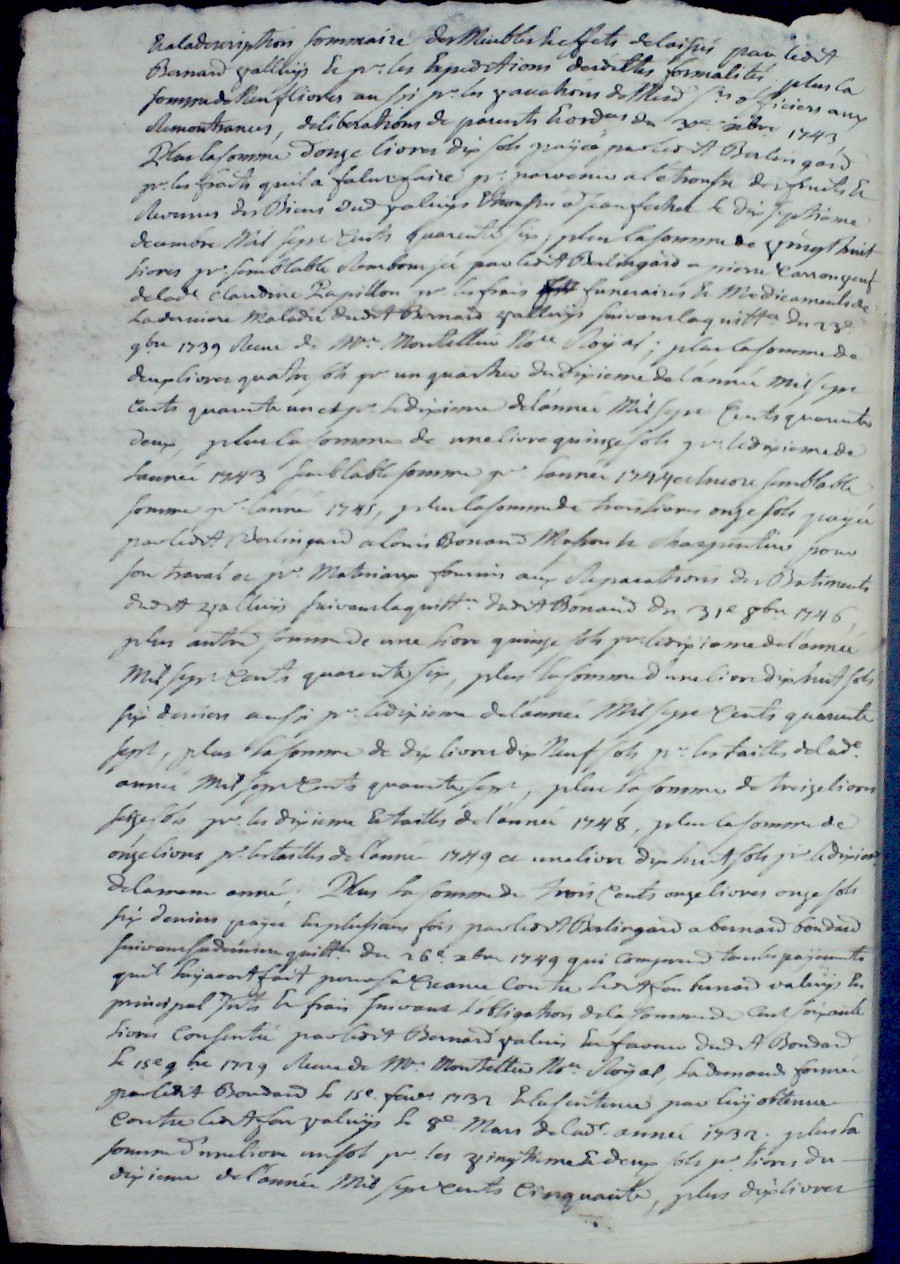 Et a la description sommaire des Meubles & effets delaissés par ledit
Bernard valluys & pr. les Expeditions desdittes formalités, plus la
somme de Neuf livres aussi pr. les vacations de officiers aux
Remontrances, deliberations de parents & ordces du xbre 1743
Plus la somme donze livres dix sols payée par ledit Berlingard
pr. les fraits quil a falu faire pr. parvenir a letrousse des fruits &
Revenus des Biens dud valluys le dix septieme
decembre Mil sept Cents quarente six, plus la somme de vingt huit
livres pr. semblable Remboursée par ledit Berlingard a pierre
de lade. Claudine Papillon pr. les frais funeraires & Medicaments de
La derniere Maladie dudit Bernard valluys suivant la quittce du 23e
9bre 1739 Receue de Me. Montellier Nore Royal; plus la somme de
deux livres quatre sols pr un quartier du dixieme de l'année Mil sept
Cents quarente un et pr. le dixieme de l'année Mil sept Cents quarente
deux, plus la somme de une livre quinze sols pr. le dixieme de
l'année 1743 semblable somme pr. l'année 1744 et encore semblable
somme pr. l'année 1745, plus la somme de trois livres onze sols payée
par ledit Berlingard a louis Bonand Masson & Charpentier pour
son travail et pr. Materiaux fournis aux Reparations des Batiments
dudit valluys suivant la quittce. dudit Bonand du 31e 8bre 1746,
plus autre somme de une livre quinze sols pr. le dixieme de l'année
Mil sept Cents quarente six, plus la somme d'une livre dix huit sols
six deniers aussi pr. le dixieme de l'année Mil sept Cents quarente
sept, plus la somme de dix livres dix Neuf sols pr. les tailles de lade.
année Mil sept Cents quarente sept, plus la somme de treize livres
seize sols pr. les dixieme & tailles de l'année 1748, plus la somme de
onze livres pr. les tailles de l'année 1749 et une livre dix huit sols pr. le dixieme
de la meme année; Plus la somme de trois Cents onze livres onze sols
six deniers payée en plusieurs fois par ledit Berlingard a bernard bondard
suivant sa derniere quittce. du 26e. xbre 1749 qui comprend tous les payements
quil luy avoit fait pour sa Creance Contre ledit feu bernard valuys en
principal & frais suivant l'obligation de la somme de Cent soixante
livres Consentie par ledit Bernard valuis En faveur dudit Bondard
Le 15e 9bre 1729 Receue de Me. Montellier Nore. Royal, La demande formée
par ledit Bondard le 15e. fevr 1732 & la sentence par luy obtenue
Contre ledit feu valuys le 8e. Mars de lade. année 1732. plus la
somme d'une livre un sol pr. les vingtieme & deux sols pr. livres du
dixieme de l'année Mil sept Cents Cinquante, plus dix livres